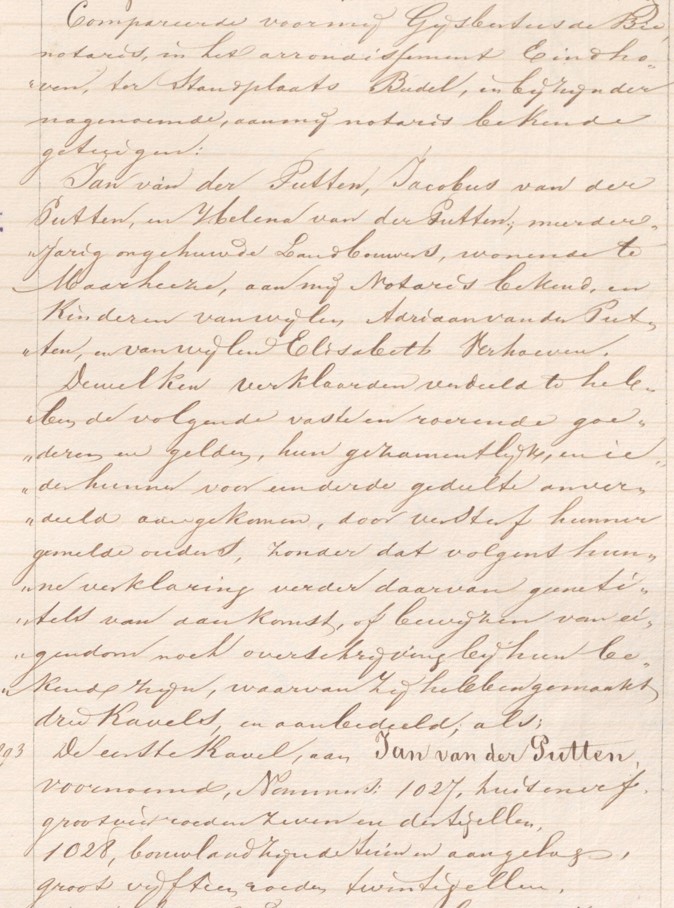 Compareerde voor mij Gijsbertus de Bie,
notaris, in het arrondissement Eindho-
"ven, ter Standplaats Budel, in bijzijn der
nagenoemde, aan mij notaris bekende
getuigen:
Jan van der Putten, Jacobus van der
Putten, en Helena van der Putten, meerder-
"jarig ongehuwde Landbouwers, wonende te
Maarheeze, aan mij Notaris bekend, en
Kinderen van wijlen Adriaan van der Put-
"ten, en van wijlen Elisabeth Verhoeven.
Dewelken verklaarden verdeeld te heb-
"ben de volgende vaste en roerende goe-
"deren en gelden, hun gezamentlijk, en ie-
"der hunner voor een derde gedeelte onver-
"deeld aangekomen, door versterf hunner
gemelde ouders, zonder dat volgens hun-
"ne verklaring verder daarvan geene ti-
"tels van aankomst, of bewijzen van ei-
"gendom noch overschrijving bij hun be-
"kend zijn, waarvan zij hebben gemaakt
drie Kavels, en aanbedeeld, als:
De eerste Kavel, aan Jan van der Putten,
voornoemd, Nommers: 1027, huis en erf,
groot vier roeden zeven en dertig ellen,
1028, bouwland zijnde tuin en aangelag,
groot vijftien roeden twintig ellen,